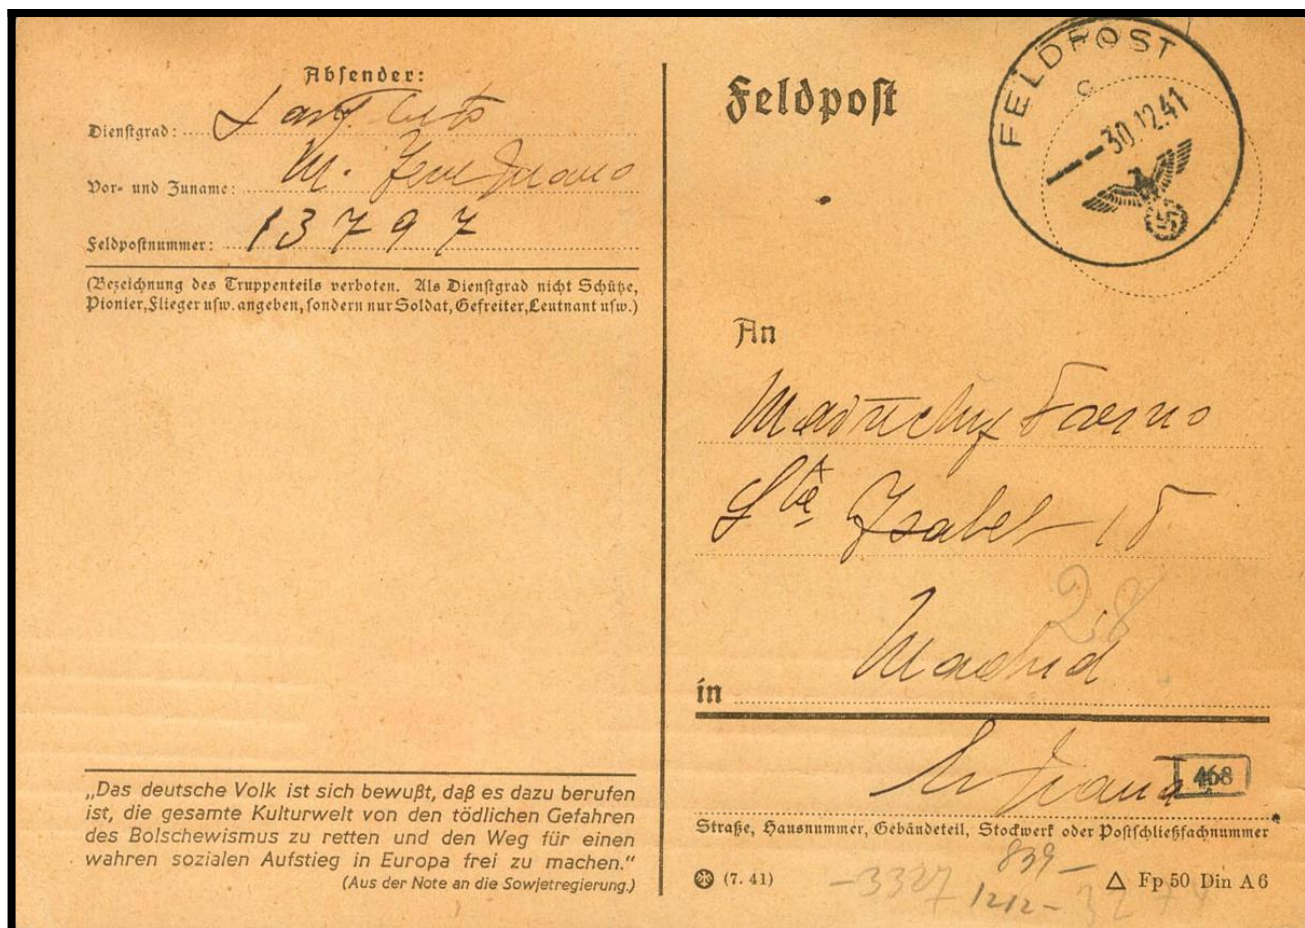 Absender:
Dienstgrad:
Vor- und Zuname: M.
Feldpostnummer: 13797
(Bezeichnung des Truppenteils verboten. Als Dienstgrad nicht Schütze,
Pionier, Flieger usw. angeben, sondern nur Soldat, Gefreiter, Leutnant usw.)
„Das deutsche Volk ist sich bewußt, daß es dazu berufen
ist, die gesamte Kulturwelt von den tödlichen Gefahren
des Bolschewismus zu retten und den Weg für einen
wahren sozialen Aufstieg in Europa frei zu machen.“
(Aus der Note an die Sowjetregierung.)
Feldpost
FELDPOST
c
30.12.41
An
Sta Ysabel 15
28
Madrid
in
468
Straße, Hausnummer, Gebäudeteil, Stockwerk oder Postschließfachnummer
(7. 41)
-3327
839-
1212-
△ Fp 50 Din A6